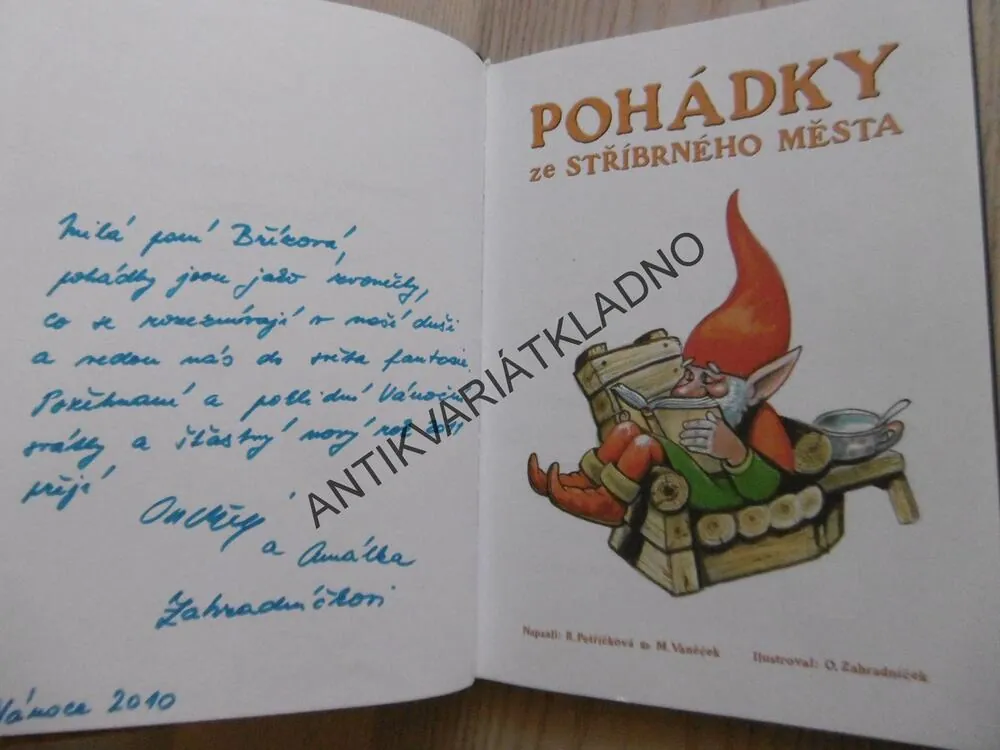 Milá paní Bříková,
pohádky jsou jako zvonečky,
co se rozeznívají v naší duši
a vedou nás do světa fantasie.
Požehnané a poklidné Vánoční
svátky a šťastný nový rok
přejí
Ondřej
a Amálka
Zahradníčkovi
Vánoce 2010
POHÁDKY
ze STŘÍBRNÉHO MĚSTA
Napsali: B. Petříčková & M. Vaněček Ilustroval: O. Zahradníček
ANTIKVARIÁTKLADNO